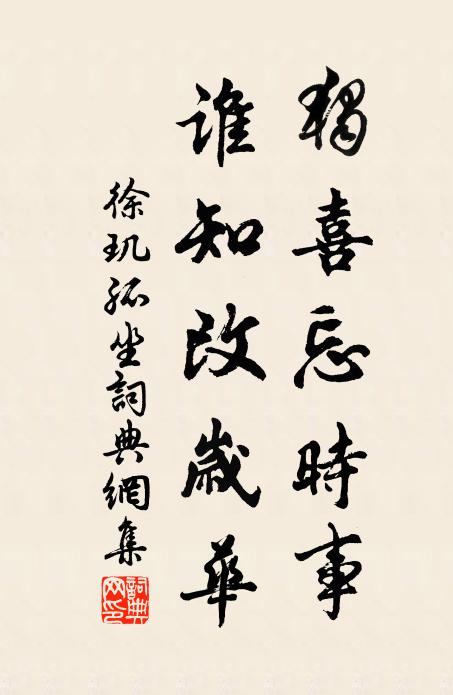 獨喜忘時事
誰知改歲華
徐玑孤坐詞典網集
詞典網印